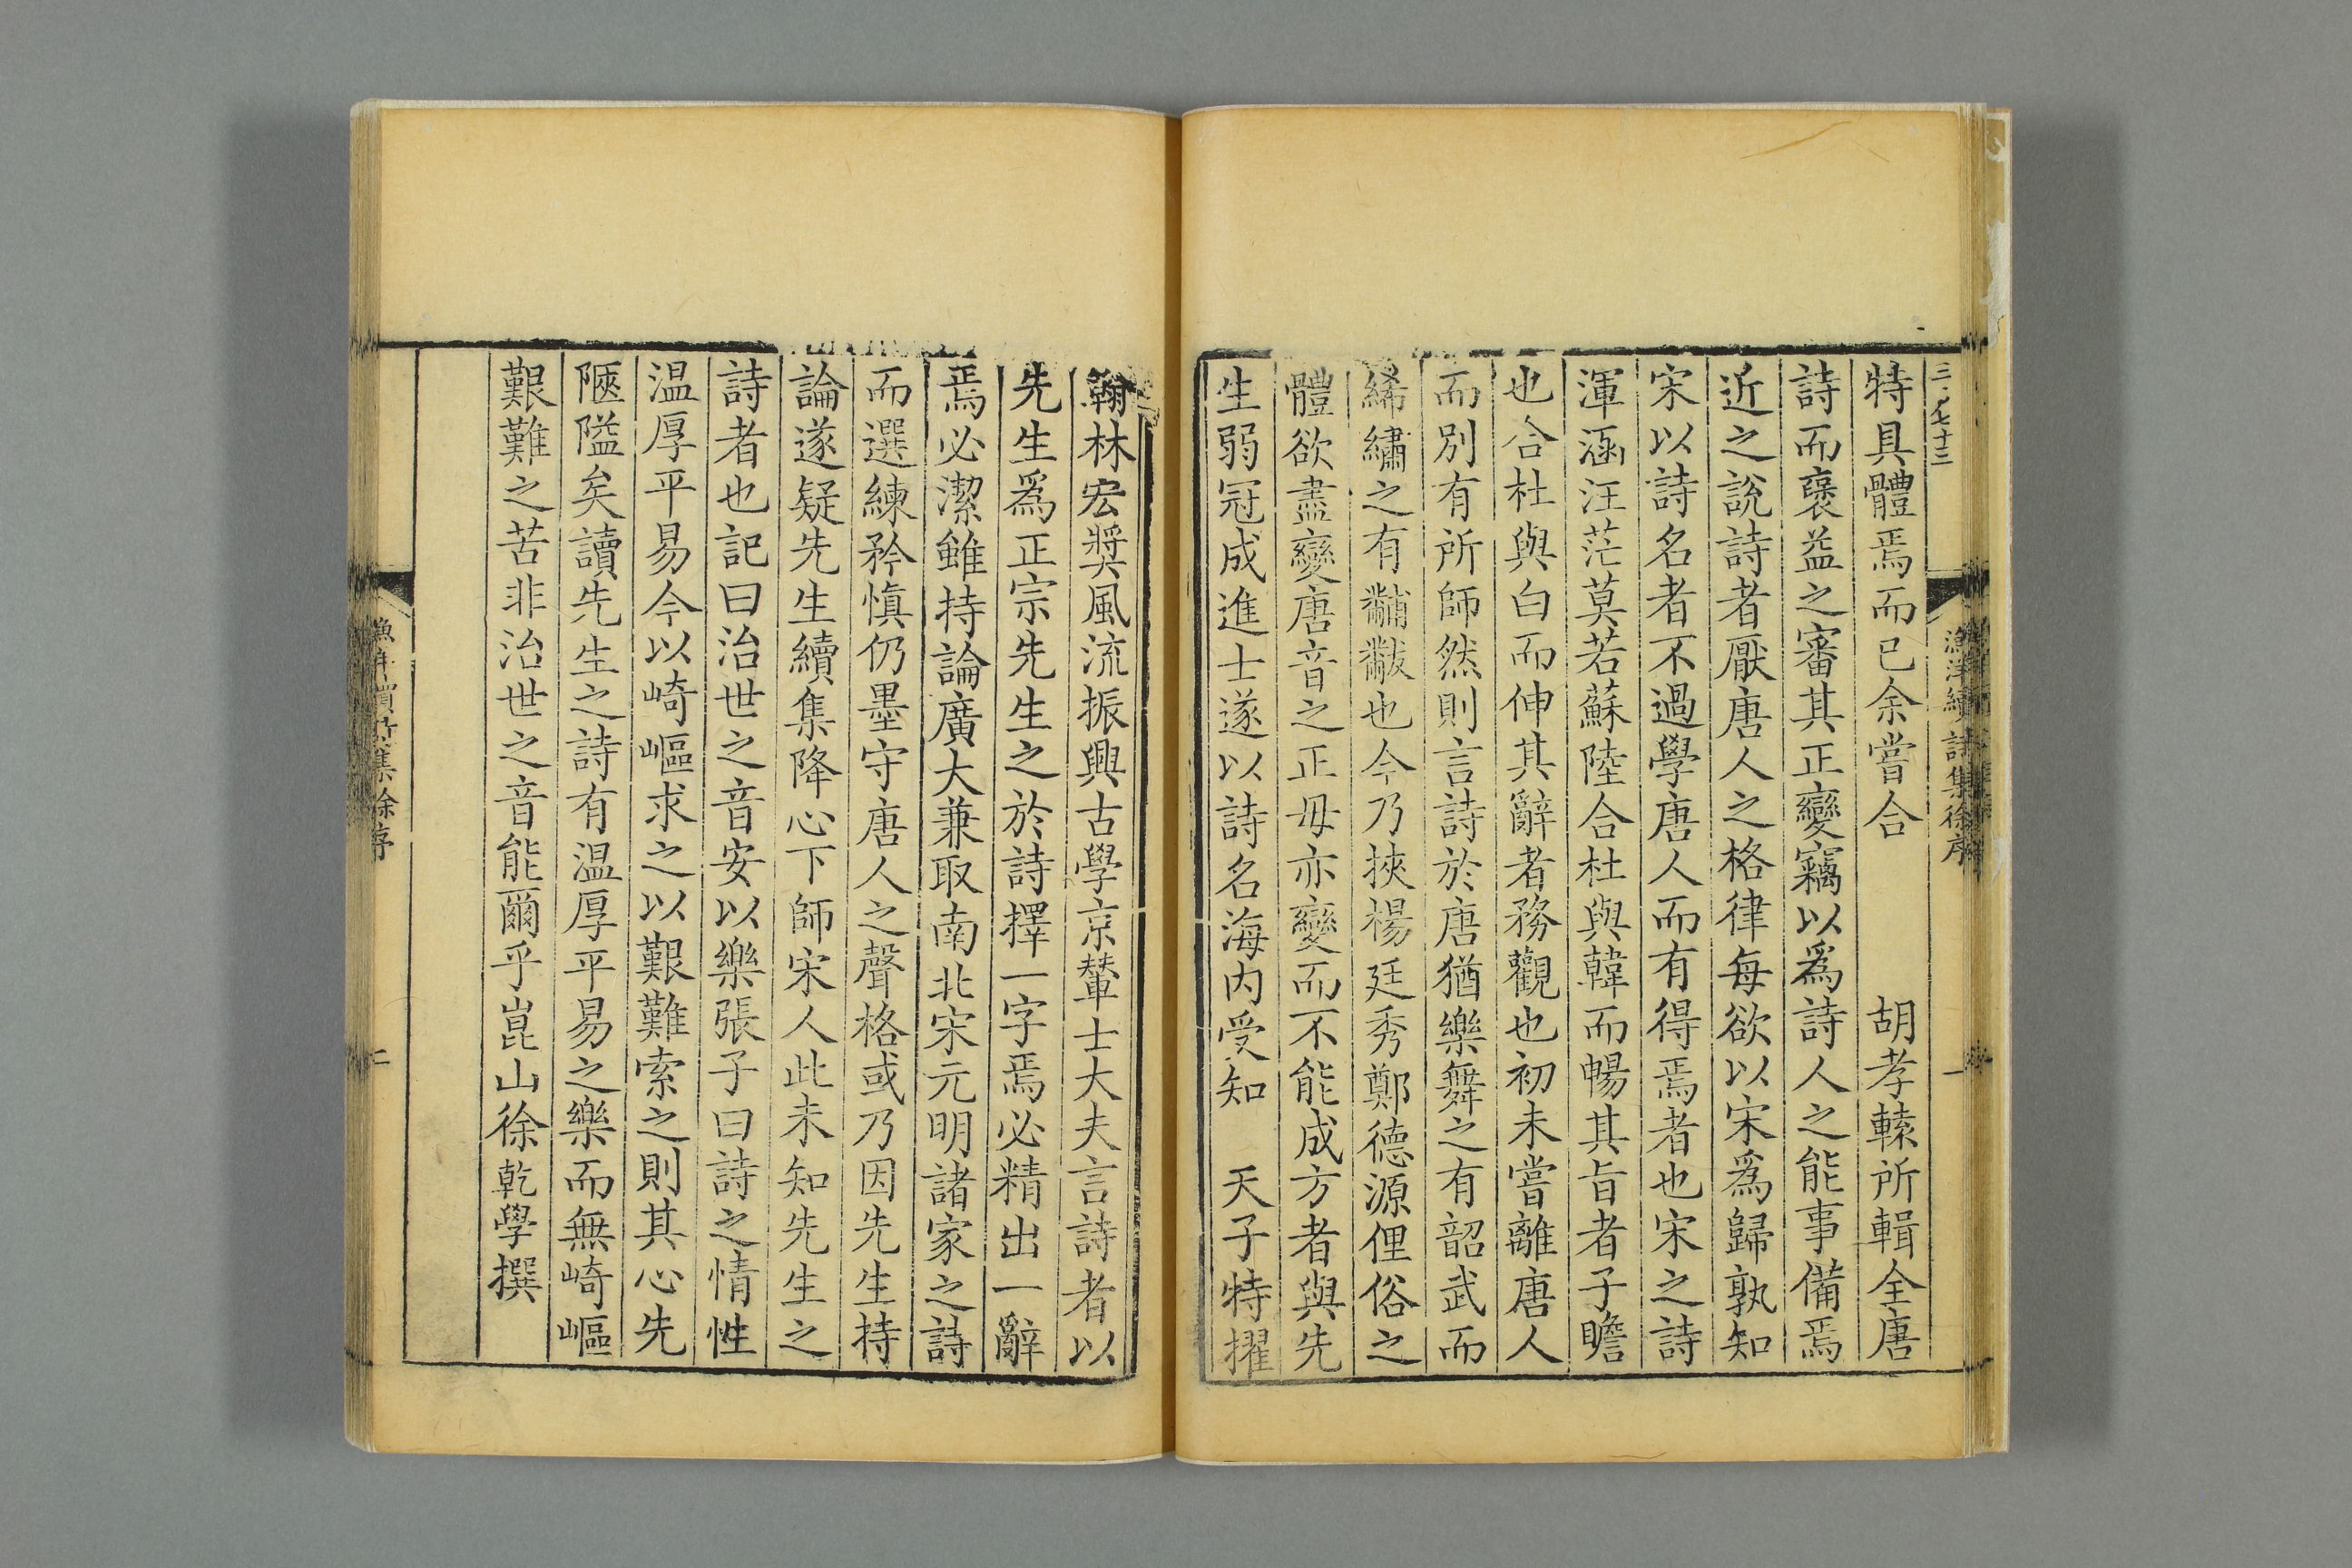 三·七十三
漁洋續詩集徐序
一
特具體焉而已余嘗合胡孝轅所輯全唐
詩而襃益之審其正變竊以爲詩人之能事備焉
近之說詩者厭唐人之格律每欲以宋爲歸孰知
宋以詩名者不過學唐人而有得焉者也宋之詩
渾涵汪茫莫若蘇陸合杜與韓而暢其旨者子瞻
也合杜與白而伸其辭者務觀也初未嘗離唐人
而別有所師然則言詩於唐猶樂舞之有韶武而
絺繡之有黼黻也今乃挾楊廷秀鄭德源俚俗之
體欲盡變唐音之正毋亦變而不能成方者與先
生弱冠成進士遂以詩名海內受知天子特擢
翰林宏奬風流振興古學京輦士大夫言詩者以
先生爲正宗先生之於詩擇一字焉必精出一辭
焉必潔雖持論廣大兼取南北宋元明諸家之詩
而選練矜愼仍墨守唐人之聲格或乃因先生持
論遂疑先生續集降心下師宋人此未知先生之
詩者也記曰治世之音安以樂張子曰詩之情性
温厚平易今以崎嶇求之以艱難索之則其心先
陿隘矣讀先生之詩有温厚平易之樂而無崎嶇
艱難之苦非治世之音能爾乎崑山徐乾學撰
集徐序
二